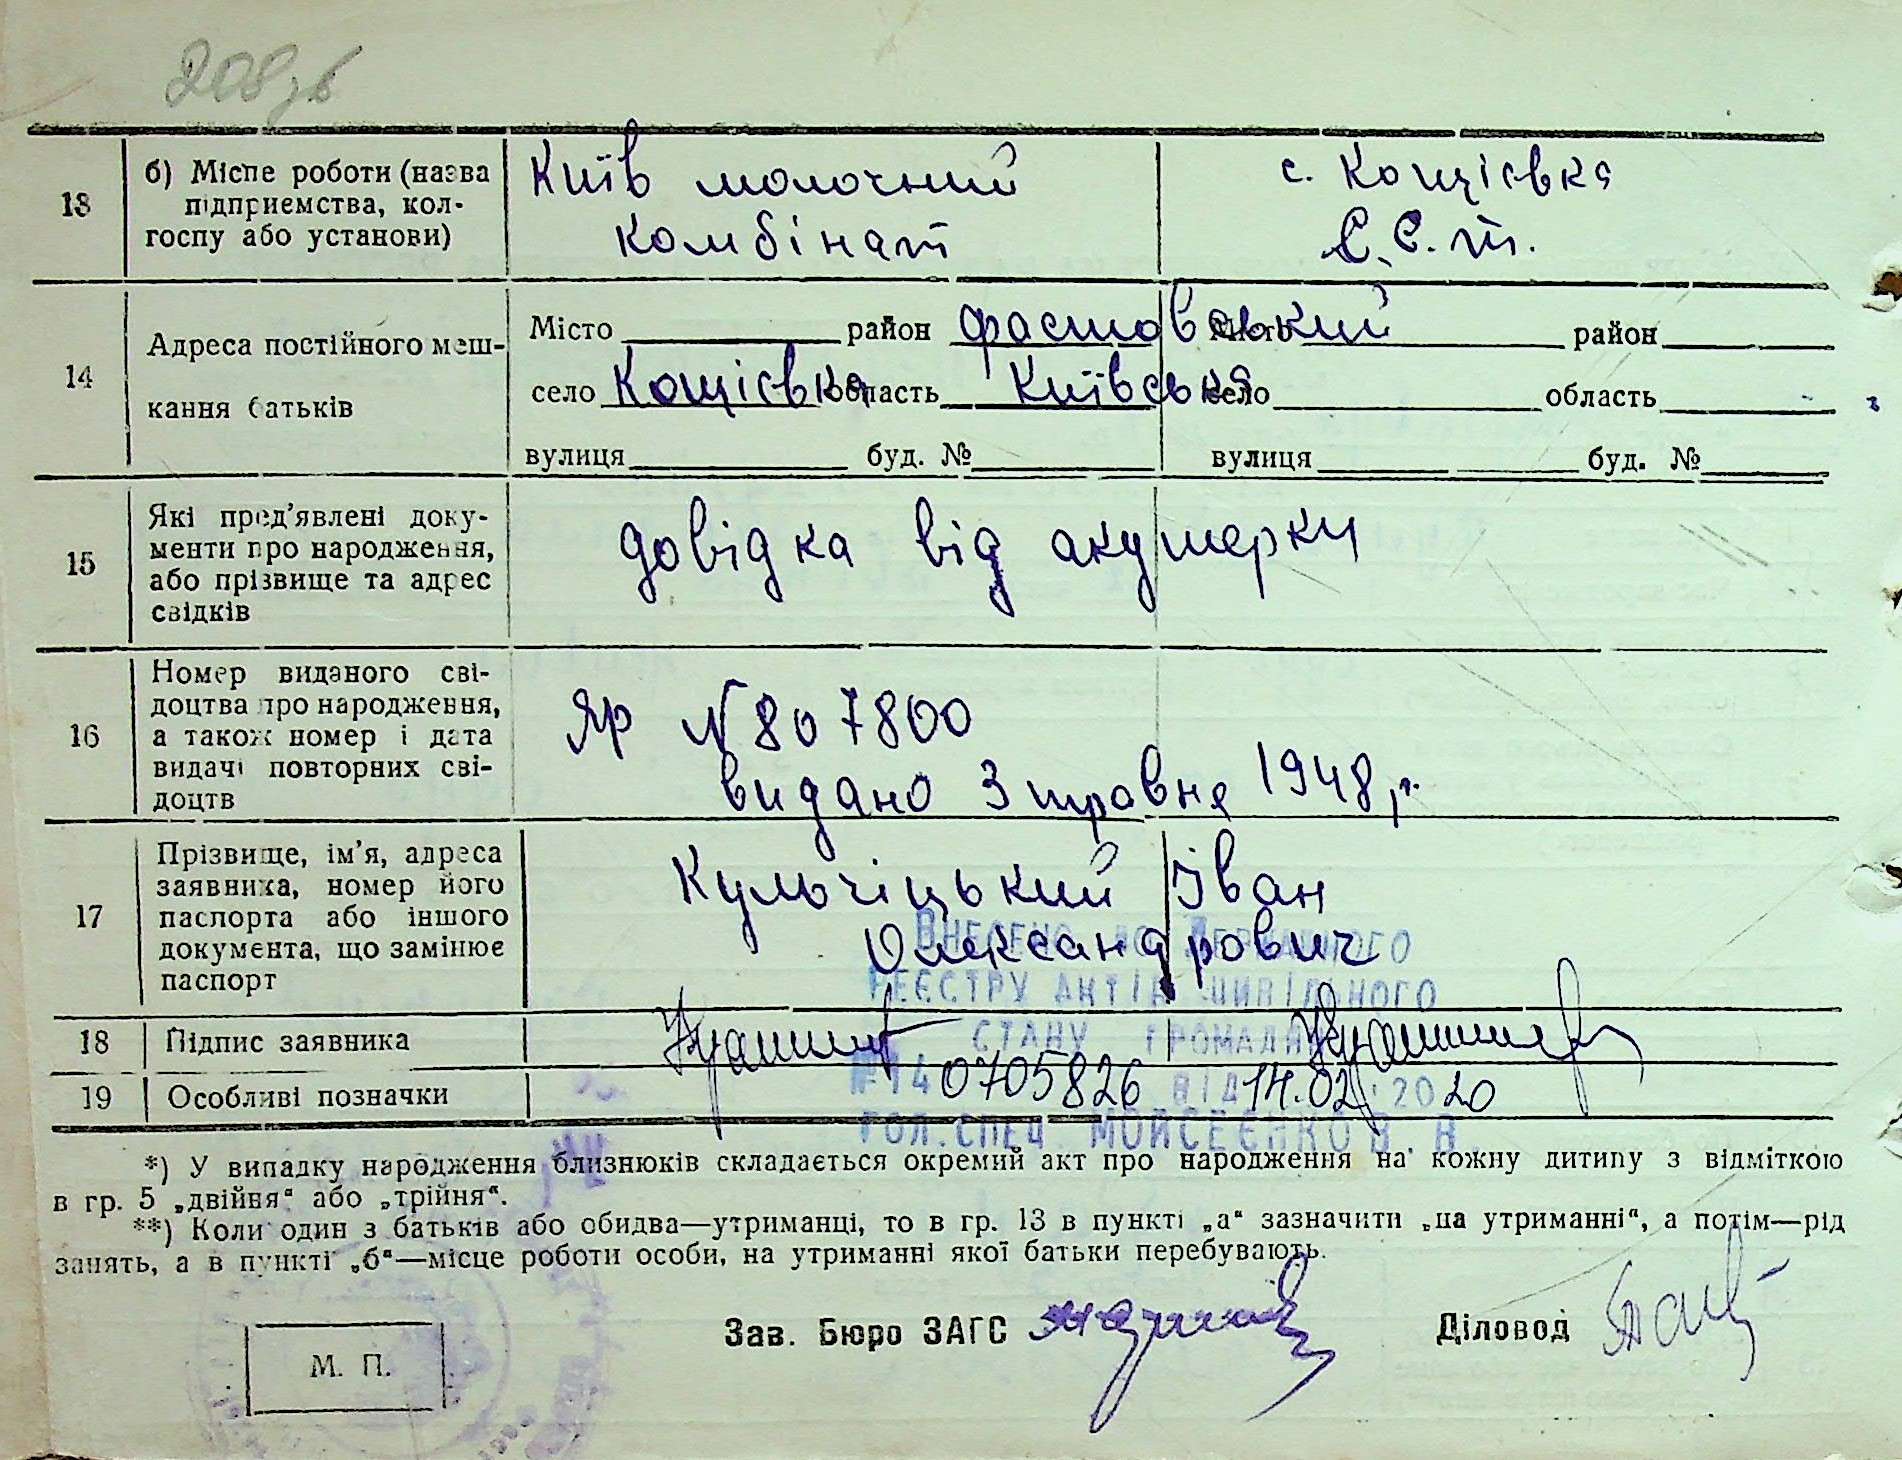 208зв
13 б) Місце роботи (назва підприємства, колгоспу або установи)
Київ молочний с. Кощіївка
комбінат С.С.т.
14 Адреса постійного мешкання батьків
Місто район фастовський Місто район
село Кощіївка область Київська село область
вулиця буд. № вулиця буд. №
15 Які пред'явлені документи про народження, або прізвище та адрес свідків
довідка від акушерки
16 Номер виданого свідоцтва про народження, а також номер і дата видачі повторних свідоцтв
ЯР N 807800
видано 3 травня 1948 р.
17 Прізвище, ім'я, адреса заявника, номер його паспорта або іншого документа, що замінює паспорт
Кульчіцький Іван
Олександрович
ВНЕСЕНО ДО ДЕРЖАВНОГО
РЕЄСТРУ АКТІВ ЦИВІЛЬНОГО
СТАНУ ГРОМАДЯН
18 Підпис заявника
№14 0705826 ВІД 14.02.2020
19 Особливі позначки
ГОЛ. СПЕЦ МОЙСЕЄНКО В. В.
*) У випадку народження близнюків складається окремий акт про народження на кожну дитину з відміткою
в гр. 5 „двійня“ або „трійня“.
**) Коли один з батьків або обидва—утриманці, то в гр. 13 в пункті „а“ зазначити „на утриманні“, а потім—рід
занять, а в пункті „б“—місце роботи особи, на утриманні якої батьки перебувають.
Зав. Бюро ЗАГС Діловод
М. П.